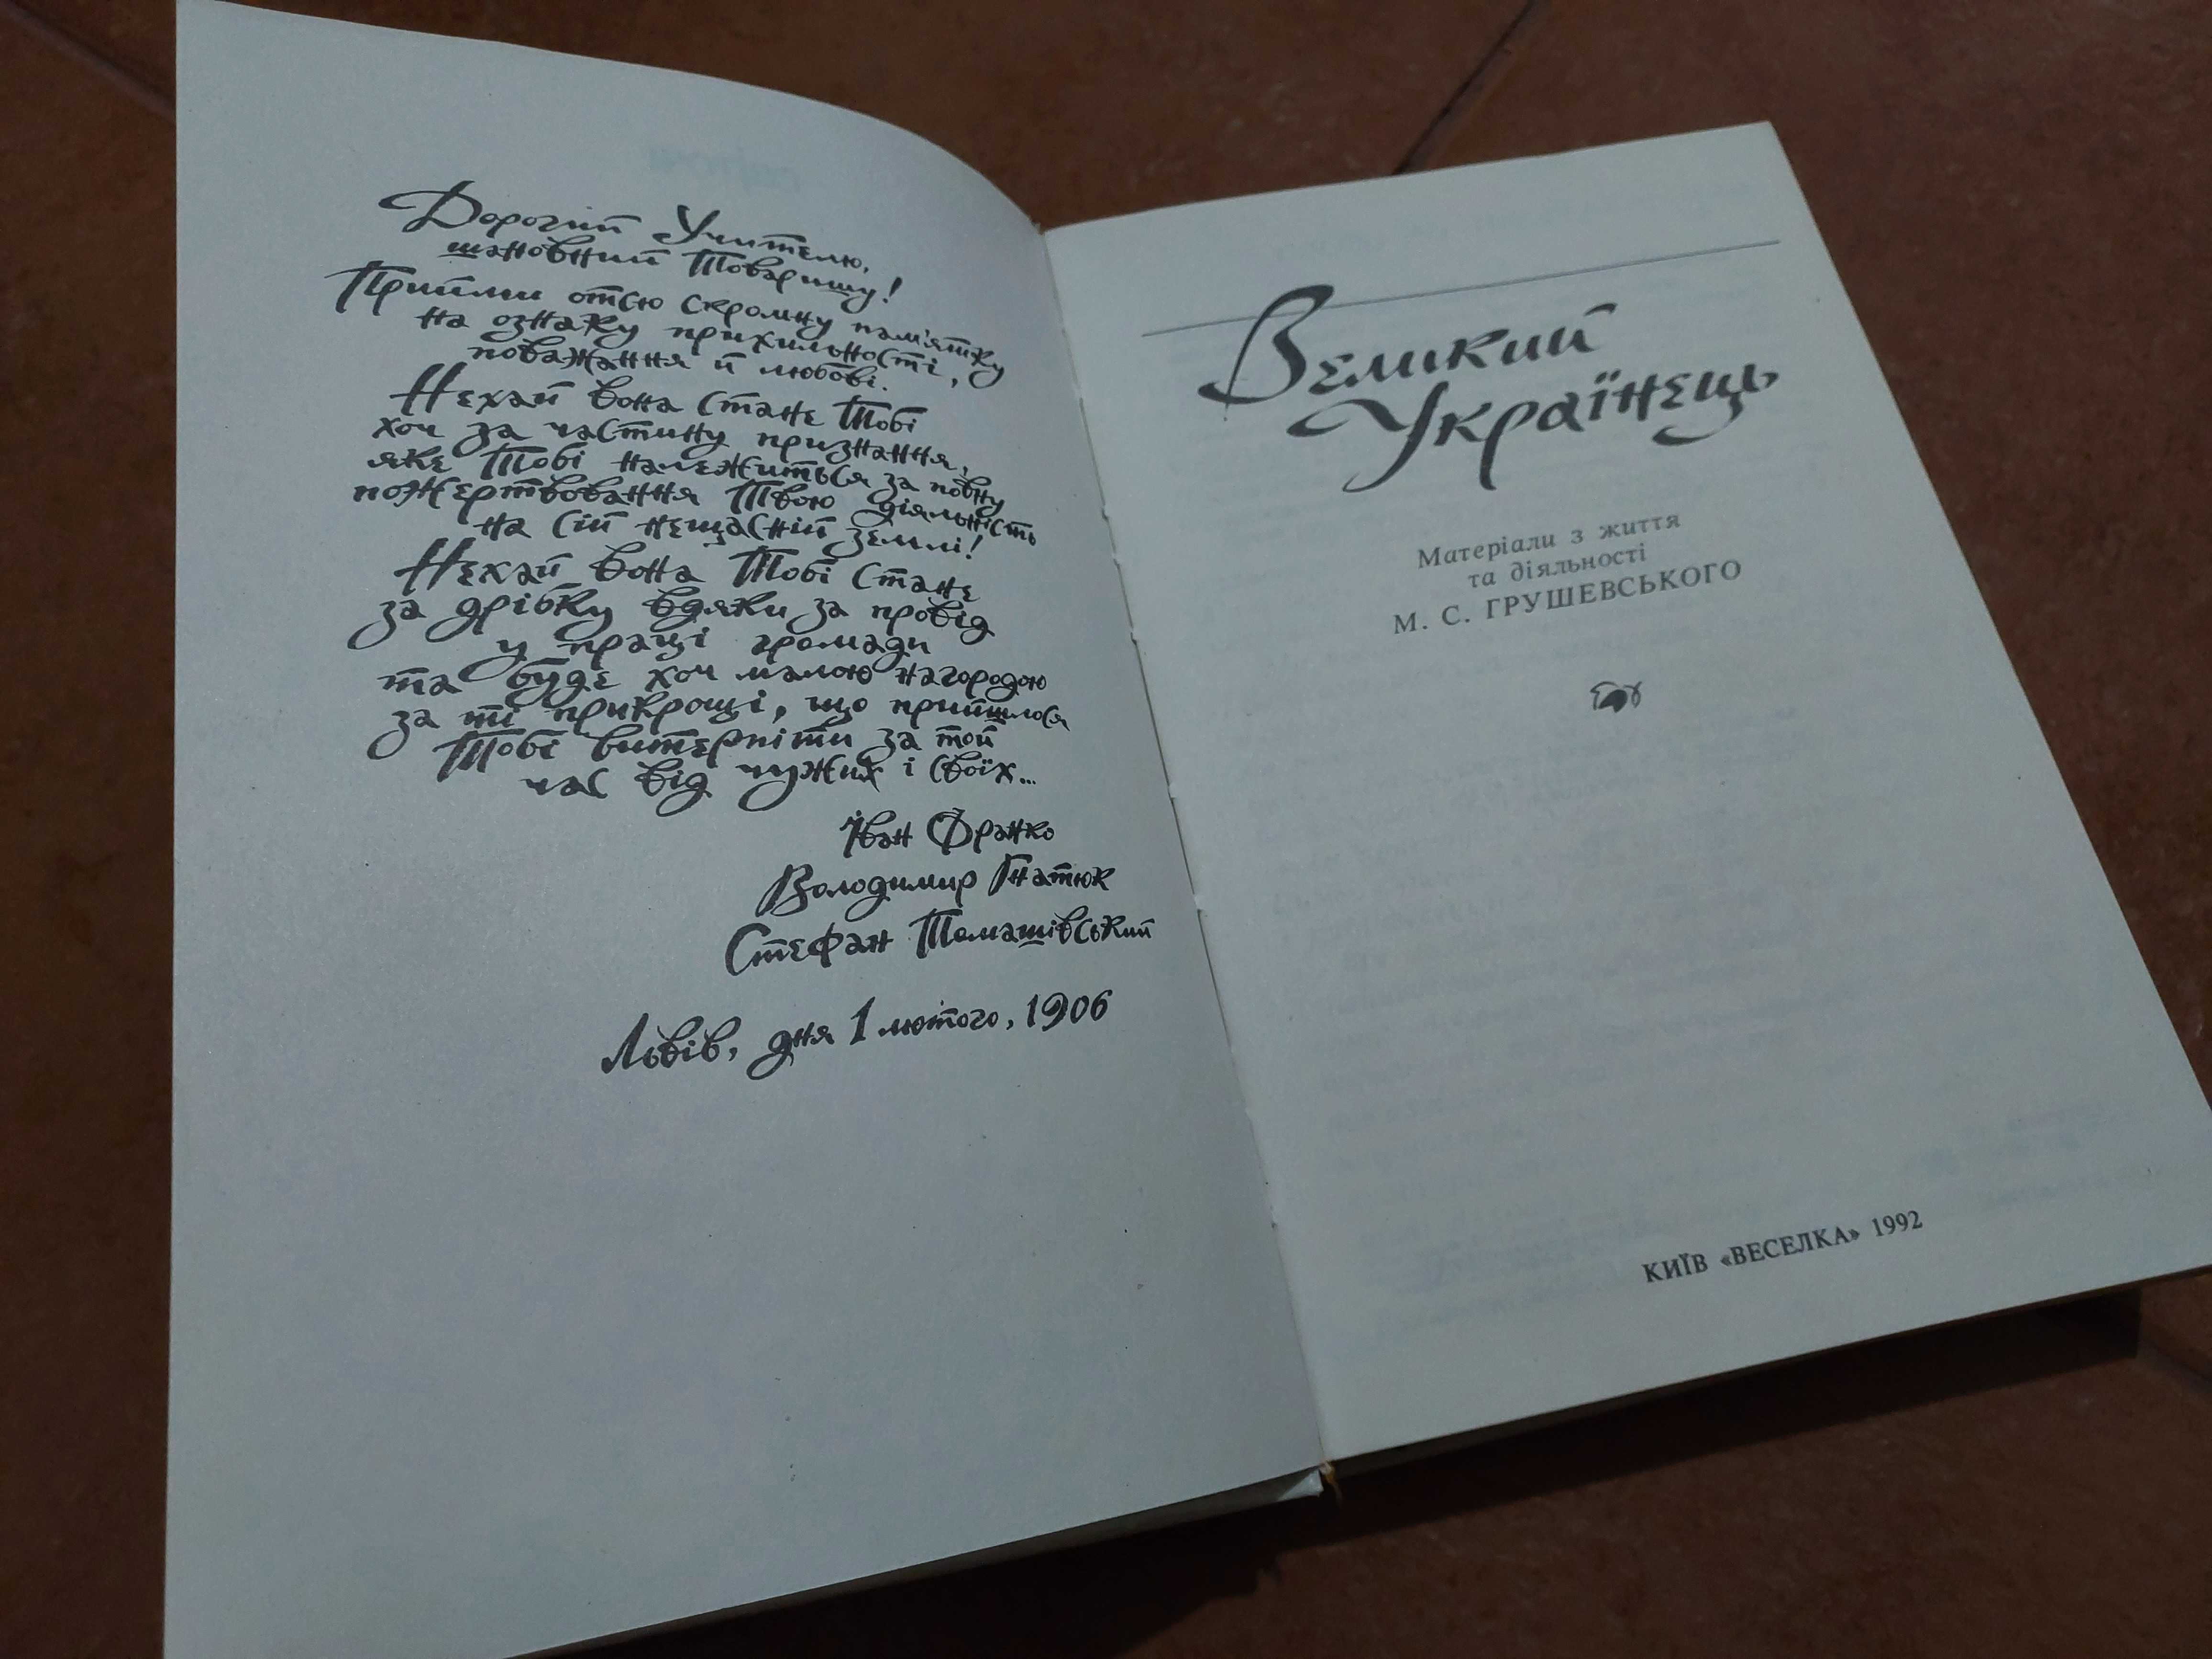 Дорогий Учителю,
шановний Товаришу!
Прийми отсю скромну пам'ятку
на ознаку прихильности,
поважання й любові.
Нехай вона стане Тобі
хоч за частину признання,
яке Тобі належиться за повну
пожертвовання Твою діяльність
на сій нещасній землі!
Нехай вона Тобі стане
за дрібку вдяки за провід
у праці громади
та буде хоч малою нагородою
за ті прикрощі, що прийшлося
Тобі витерпіти за той
час від чужих і своїх...
Іван Франко
Володимир Гнатюк
Стефан Томашівський
Львів, дня 1 лютого, 1906
Великий
Українець
Матеріали з життя
та діяльності
М. С. ГРУШЕВСЬКОГО
КИЇВ «ВЕСЕЛКА» 1992